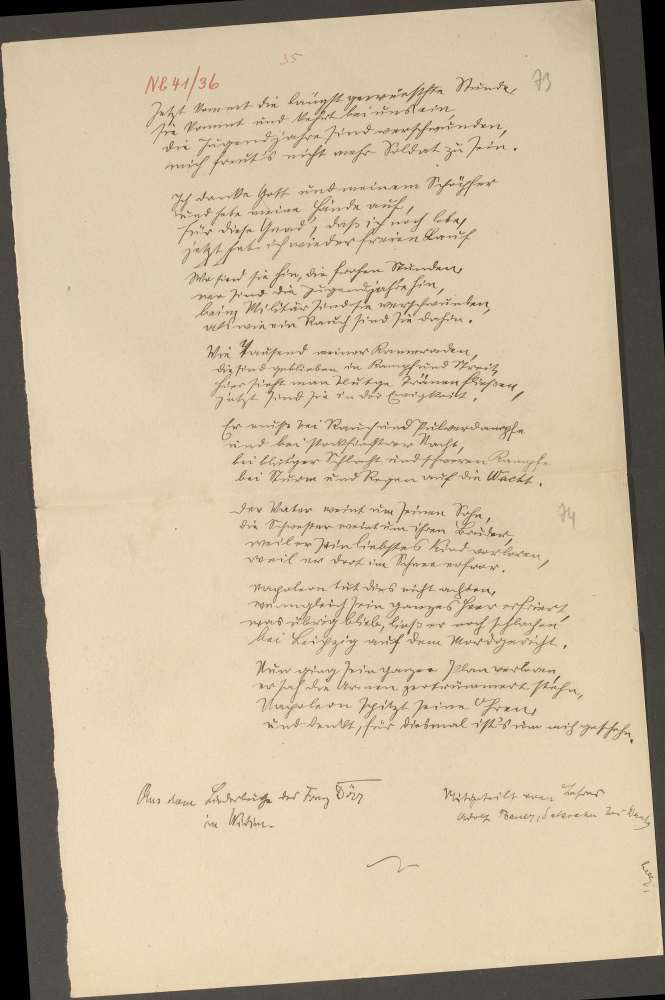 35
NL 41/36
73
Jetzt kommt die längst gewünschte Stunde,
sie kommt und kehrt bei uns ein
die Jugendjahre sind verschwunden,
mich freut's nicht mehr Soldat zu sein.
Ich danke Gott und meinem Schöpfer
und hebe meine Hände auf,
für diese Gnad', daß ich noch lebe,
jetzt hab ich wieder freien Lauf
Wo sind sie hin, die frohen Stunden,
wo sind die Jugendjahre hin,
beim Militär sind sie verschwunden,
als wie ein Rauch sind sie dahin.
Wie Tausend meiner Kameraden,
die sind geblieben in Kampf und Streit,
hier sieht man blutge Tränen fließen,
jetzt sind sie in der Ewigkeit.
Er muß bei Rauch und Pulverdampfe
und bei stockfinstrer Nacht,
bei blutger Schlacht und schweren Kampfe
bei Sturm und Regen auf die Wacht.
74
Der Vater weint um seinen Sohn,
die Schwester weint um ihren Bruder,
weil er sein liebstes Kind verloren,
weil er dort im Schnee erfror.
Napoleon tut dies nicht achten,
wenngleich sein ganzes Heer erfriert,
was übrig blieb, ließ er noch schlachten
bei Leipzig auf dem Mordgericht.
Nun ging sein ganzer Plan verloren,
er sah die Armen zertrümmert stehn,
Napoleon spitzt seine Ohren,
und denkt, für diesmal ist's um mich geschehn.
Aus dem Liederbuche des Franz Dörr
in Widim.
Mitgeteilt vom Lehrer
Adolf Bauer,